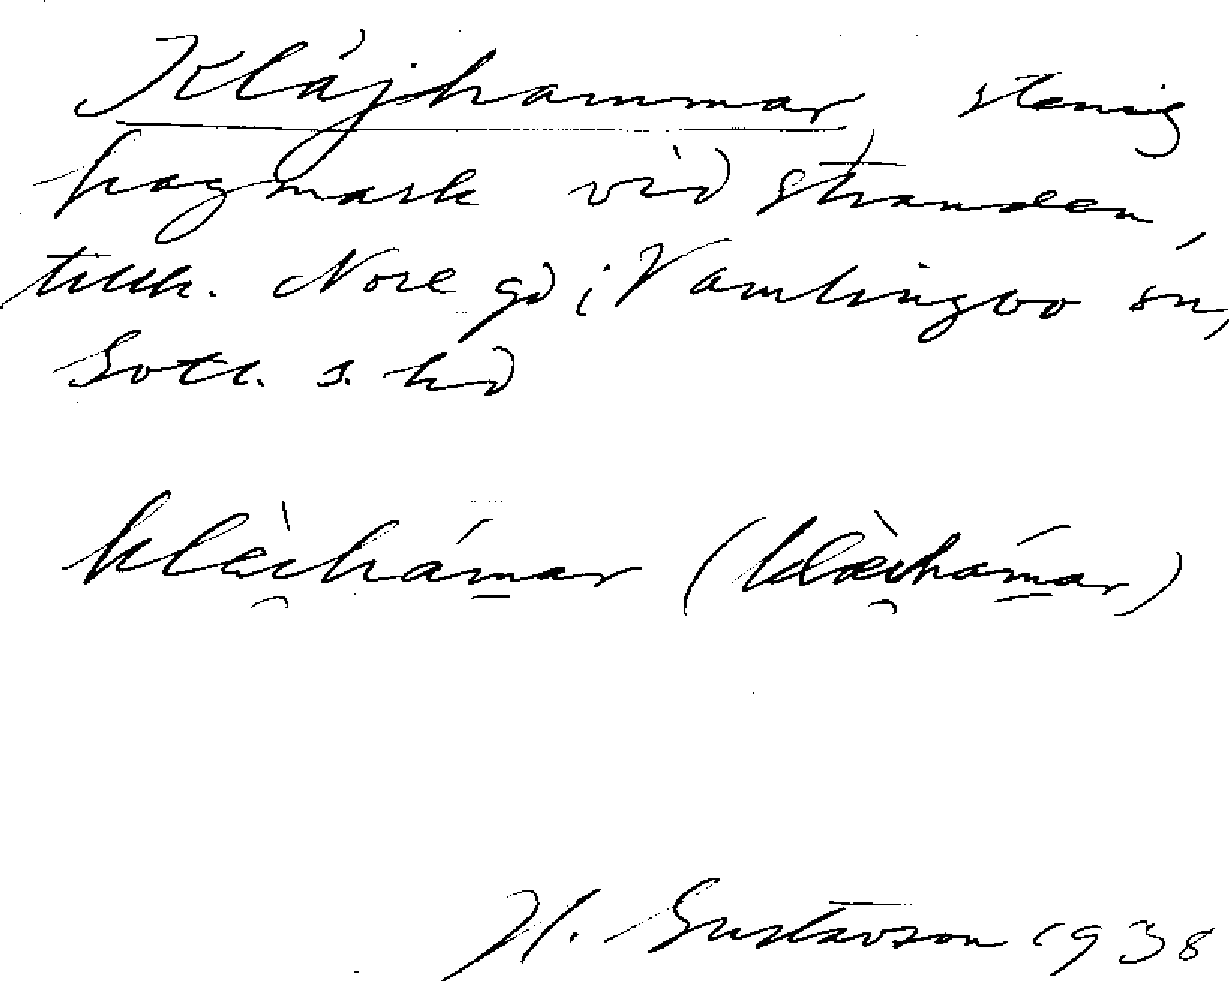 Klájhammar stenig
hagmark vid stranden,
tillh. Nore gd i Vamlingbo sn,
Gotl. s. hd
klèi̯hám̱ar (klæ̀i̯hám̱ar)
H. Gustavson 1938